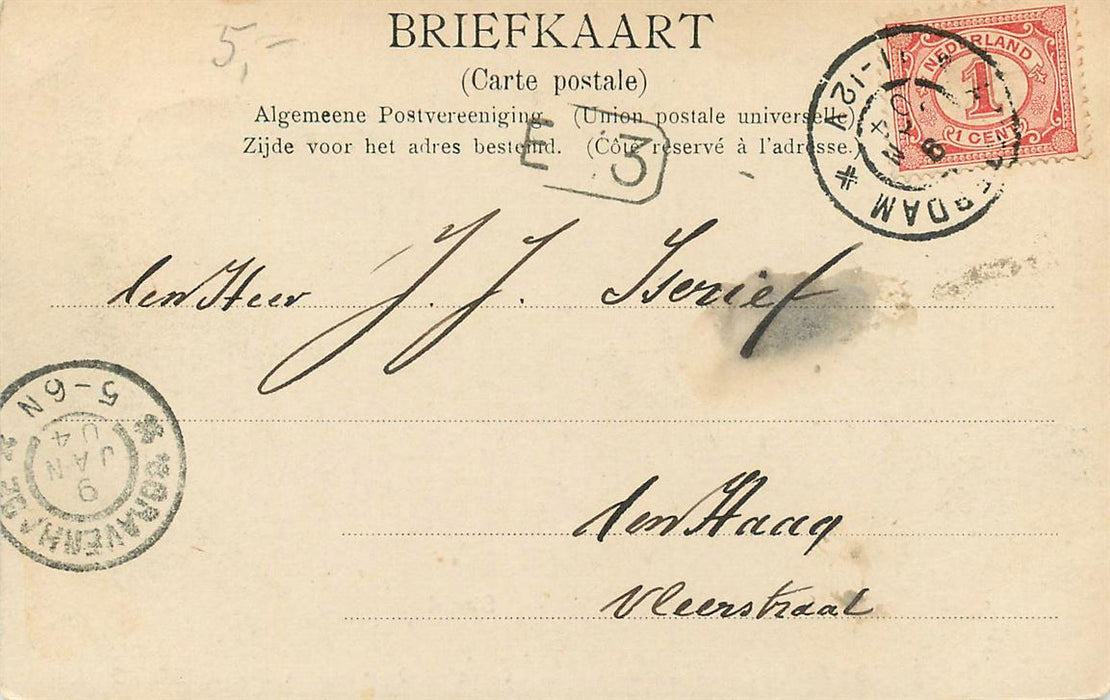 5,-
BRIEFKAART
(Carte postale)
Algemeene Postvereeniging. (Union postale universelle)
Zijde voor het adres bestemd. (Côté réservé à l'adresse.)
NEDERLAND
1
(1 CENT)
11-12 V
9 JAN 04
E 3
den Heer J. J. Iserief
5-6 N
9
JAN
04
den Haag
Vleerstraat